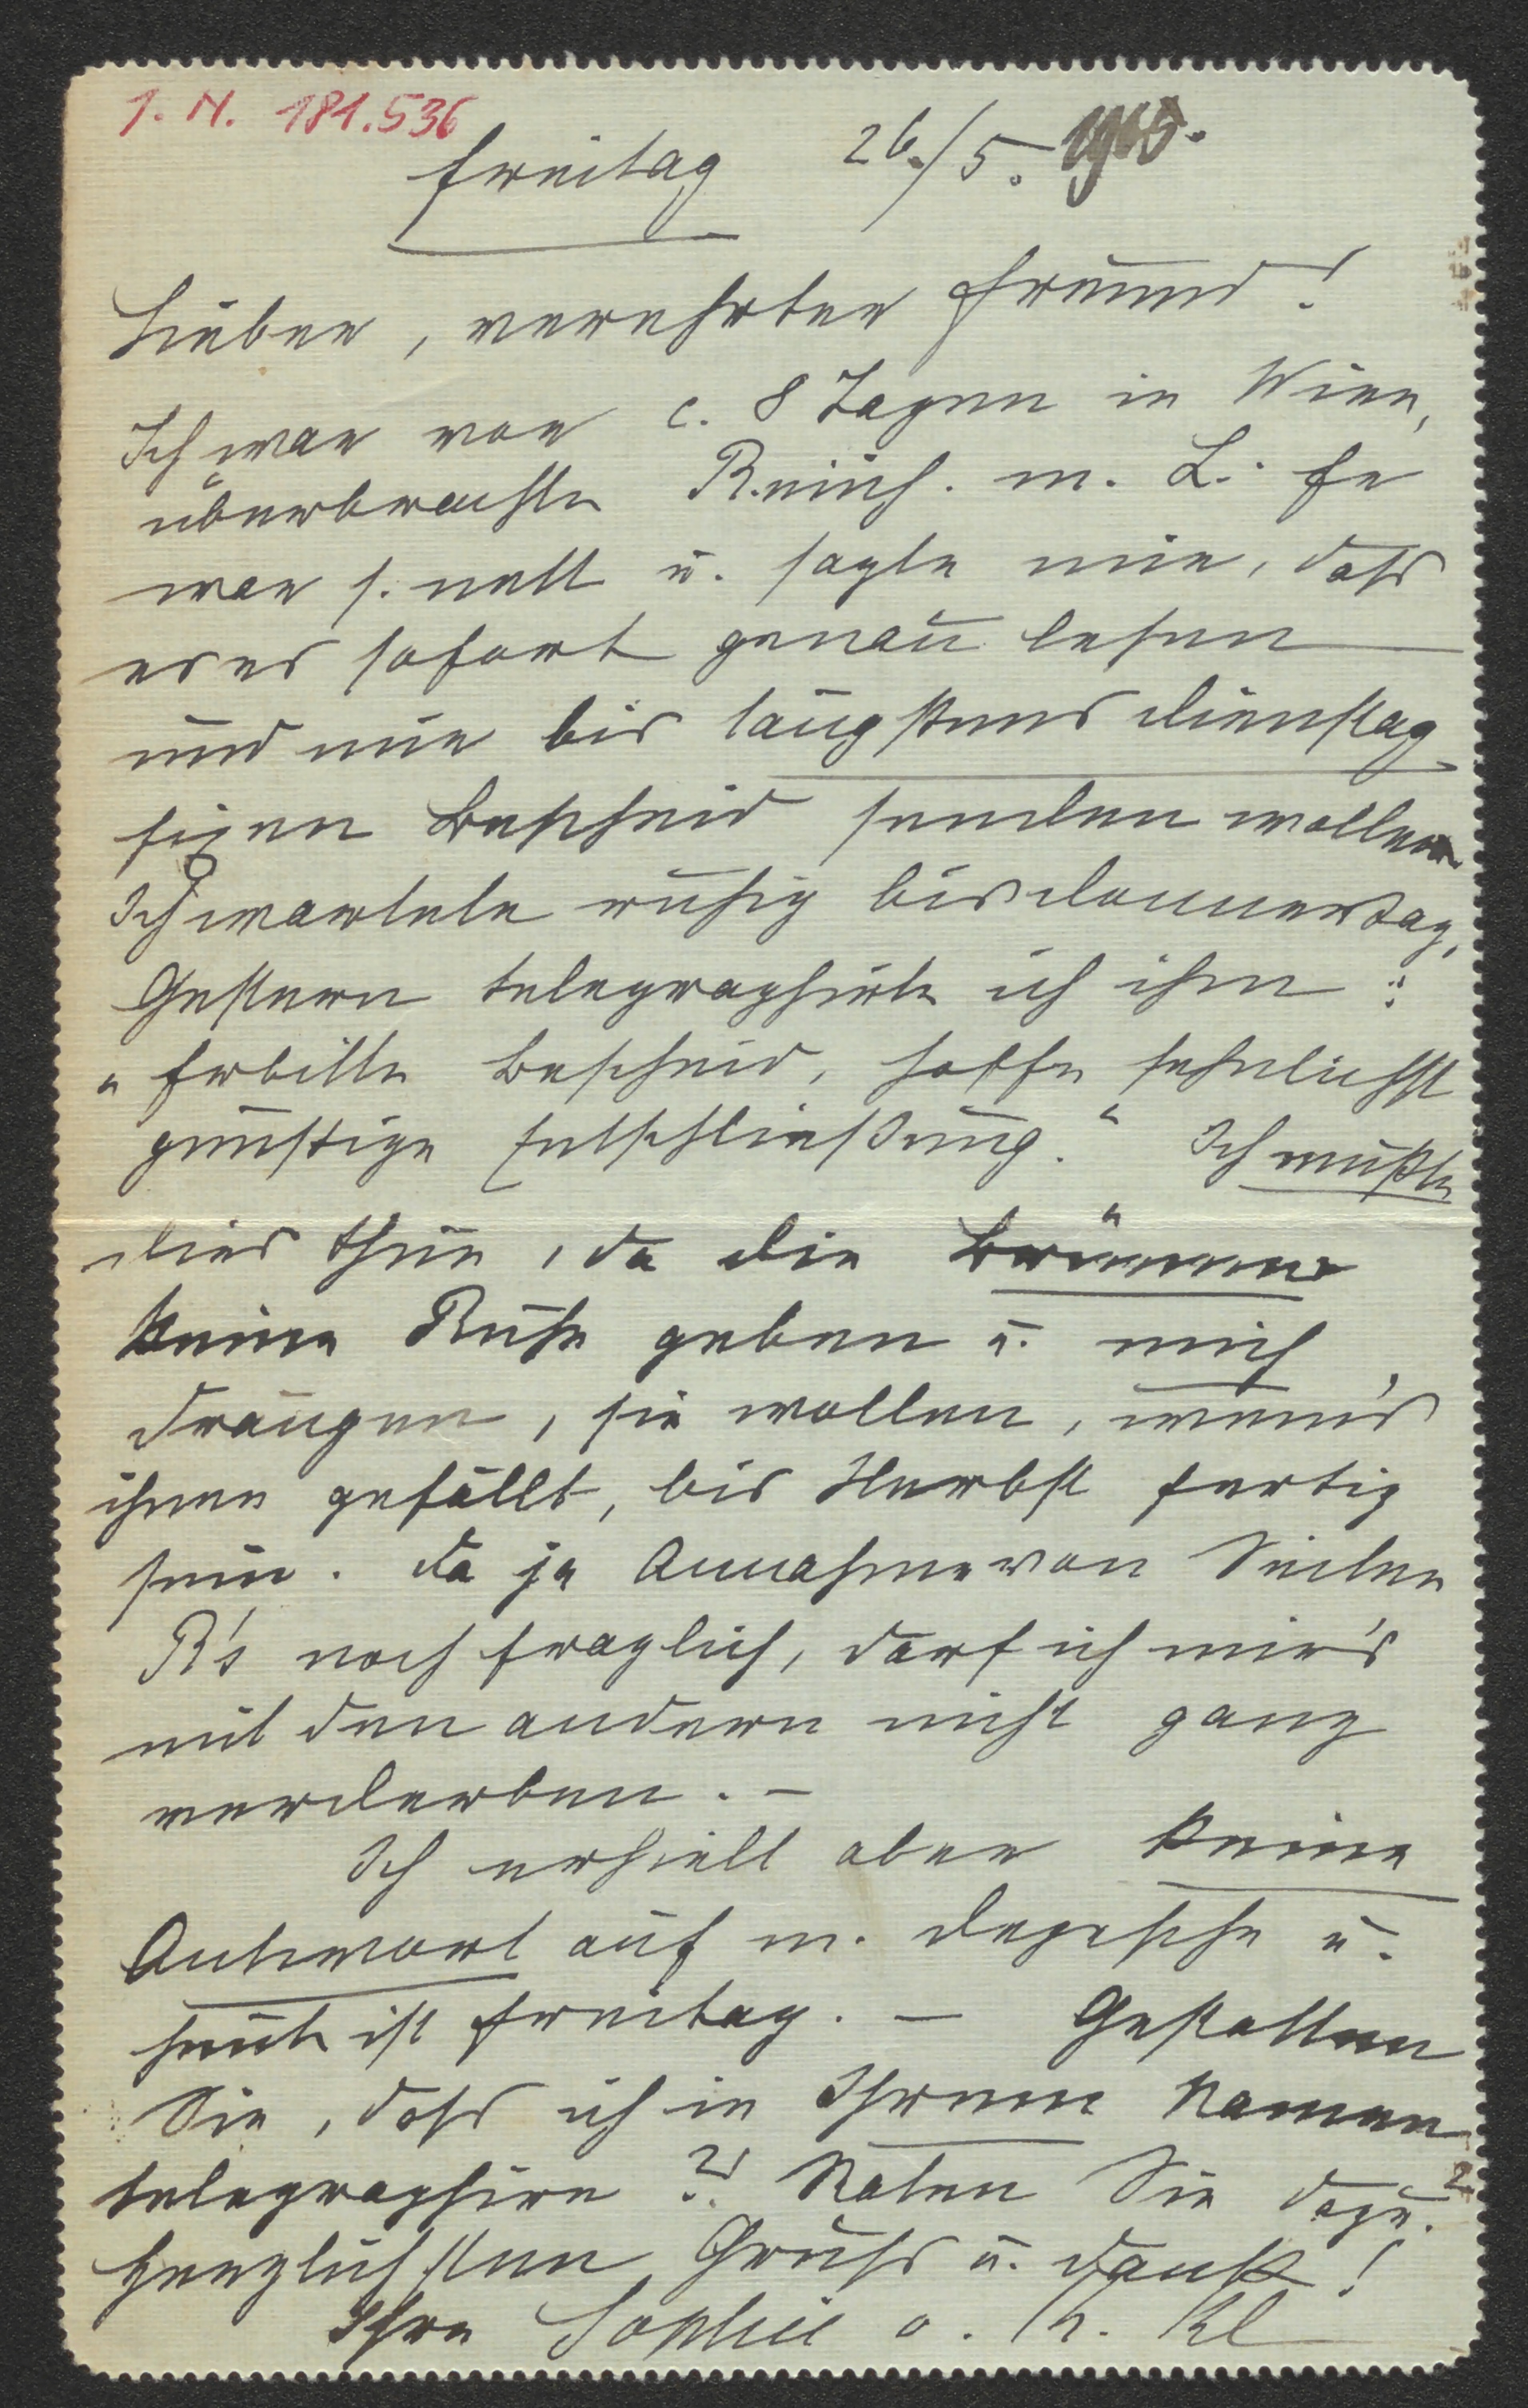 I. N. 181.536
Freitag 26./5. 1905.
Lieber, verehrter Freund!
Ich war vor c. 8 Tagen in Wien,
überbrachte Reinh. m. L. Er
war s. nett u. sagte mir, dass
er es sofort genau lesen
und mir bis längstens Dienstag
seinen Bescheid senden wollen
Ich wartete ruhig bis Donnerstag,
Gestern telegraphirte ich ihm:
„Erbitte Bescheid, hoffe sehnlichst
günstige Entschließung." Ich mußte
dies thun, da die
keine Ruhe geben u. mich
drängen, sie wollen, wenn's
ihnen gefällt, bis Herbst fertig
sein. Da ja Annahme von Seiten
R's noch fraglich, darf ich mir's
mit den andern nicht ganz
verderben. –
Ich erhielt aber keine
Antwort auf m. Depesche u.
heute ist Freitag. – Gestatten
Sie, dass ich in Ihrem Namen
telegraphire? Raten Sie dazu?
Herzlichsten Gruss u. Dank!
Ihre Sophie o. K. Kl